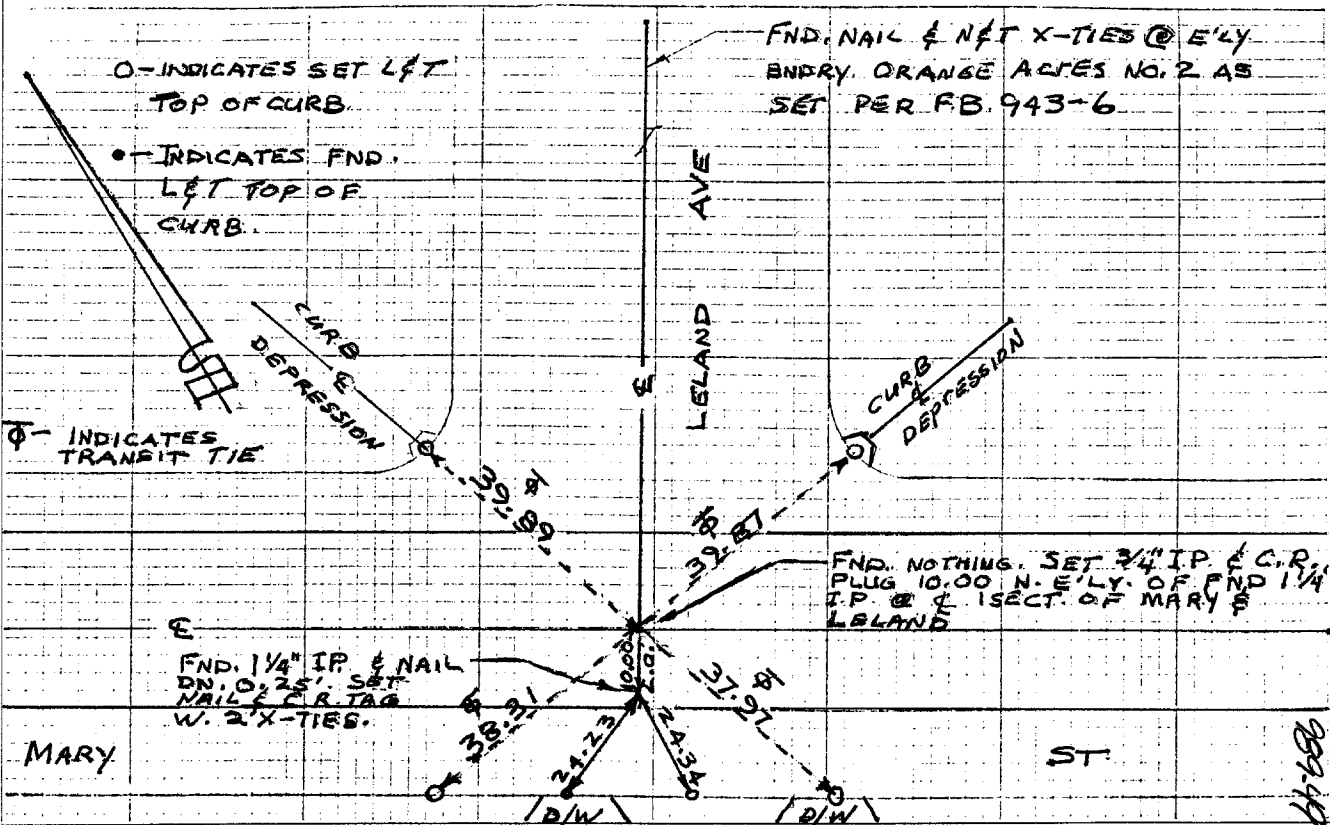 O-INDICATES SET L&T
TOP OF CURB
•-INDICATES FND.
L&T TOP OF
CURB.
FND. NAIL & N&T X-TIES @ E'LY
BNDRY. ORANGE ACRES NO. 2 AS
SET PER F.B. 943-6
LELAND AVE
℄
CURB
℄
DEPRESSION
CURB
℄
DEPRESSION
ꟁ- INDICATES
TRANSIT TIE
39.89
39.87
FND. NOTHING. SET 3/4" I.P. & C.R.
PLUG 10.00 N. E'LY. OF FND 1 1/4"
I.P. @ ℄ ISECT. OF MARY &
LELAND
℄
FND. 1 1/4" I.P. & NAIL
DN. 0.25'. SET
NAIL & C.R. TAG
W. 2 X-TIES.
10.00
38.31
24.23
24.34
37.97
MARY
ST
D/W
D/W